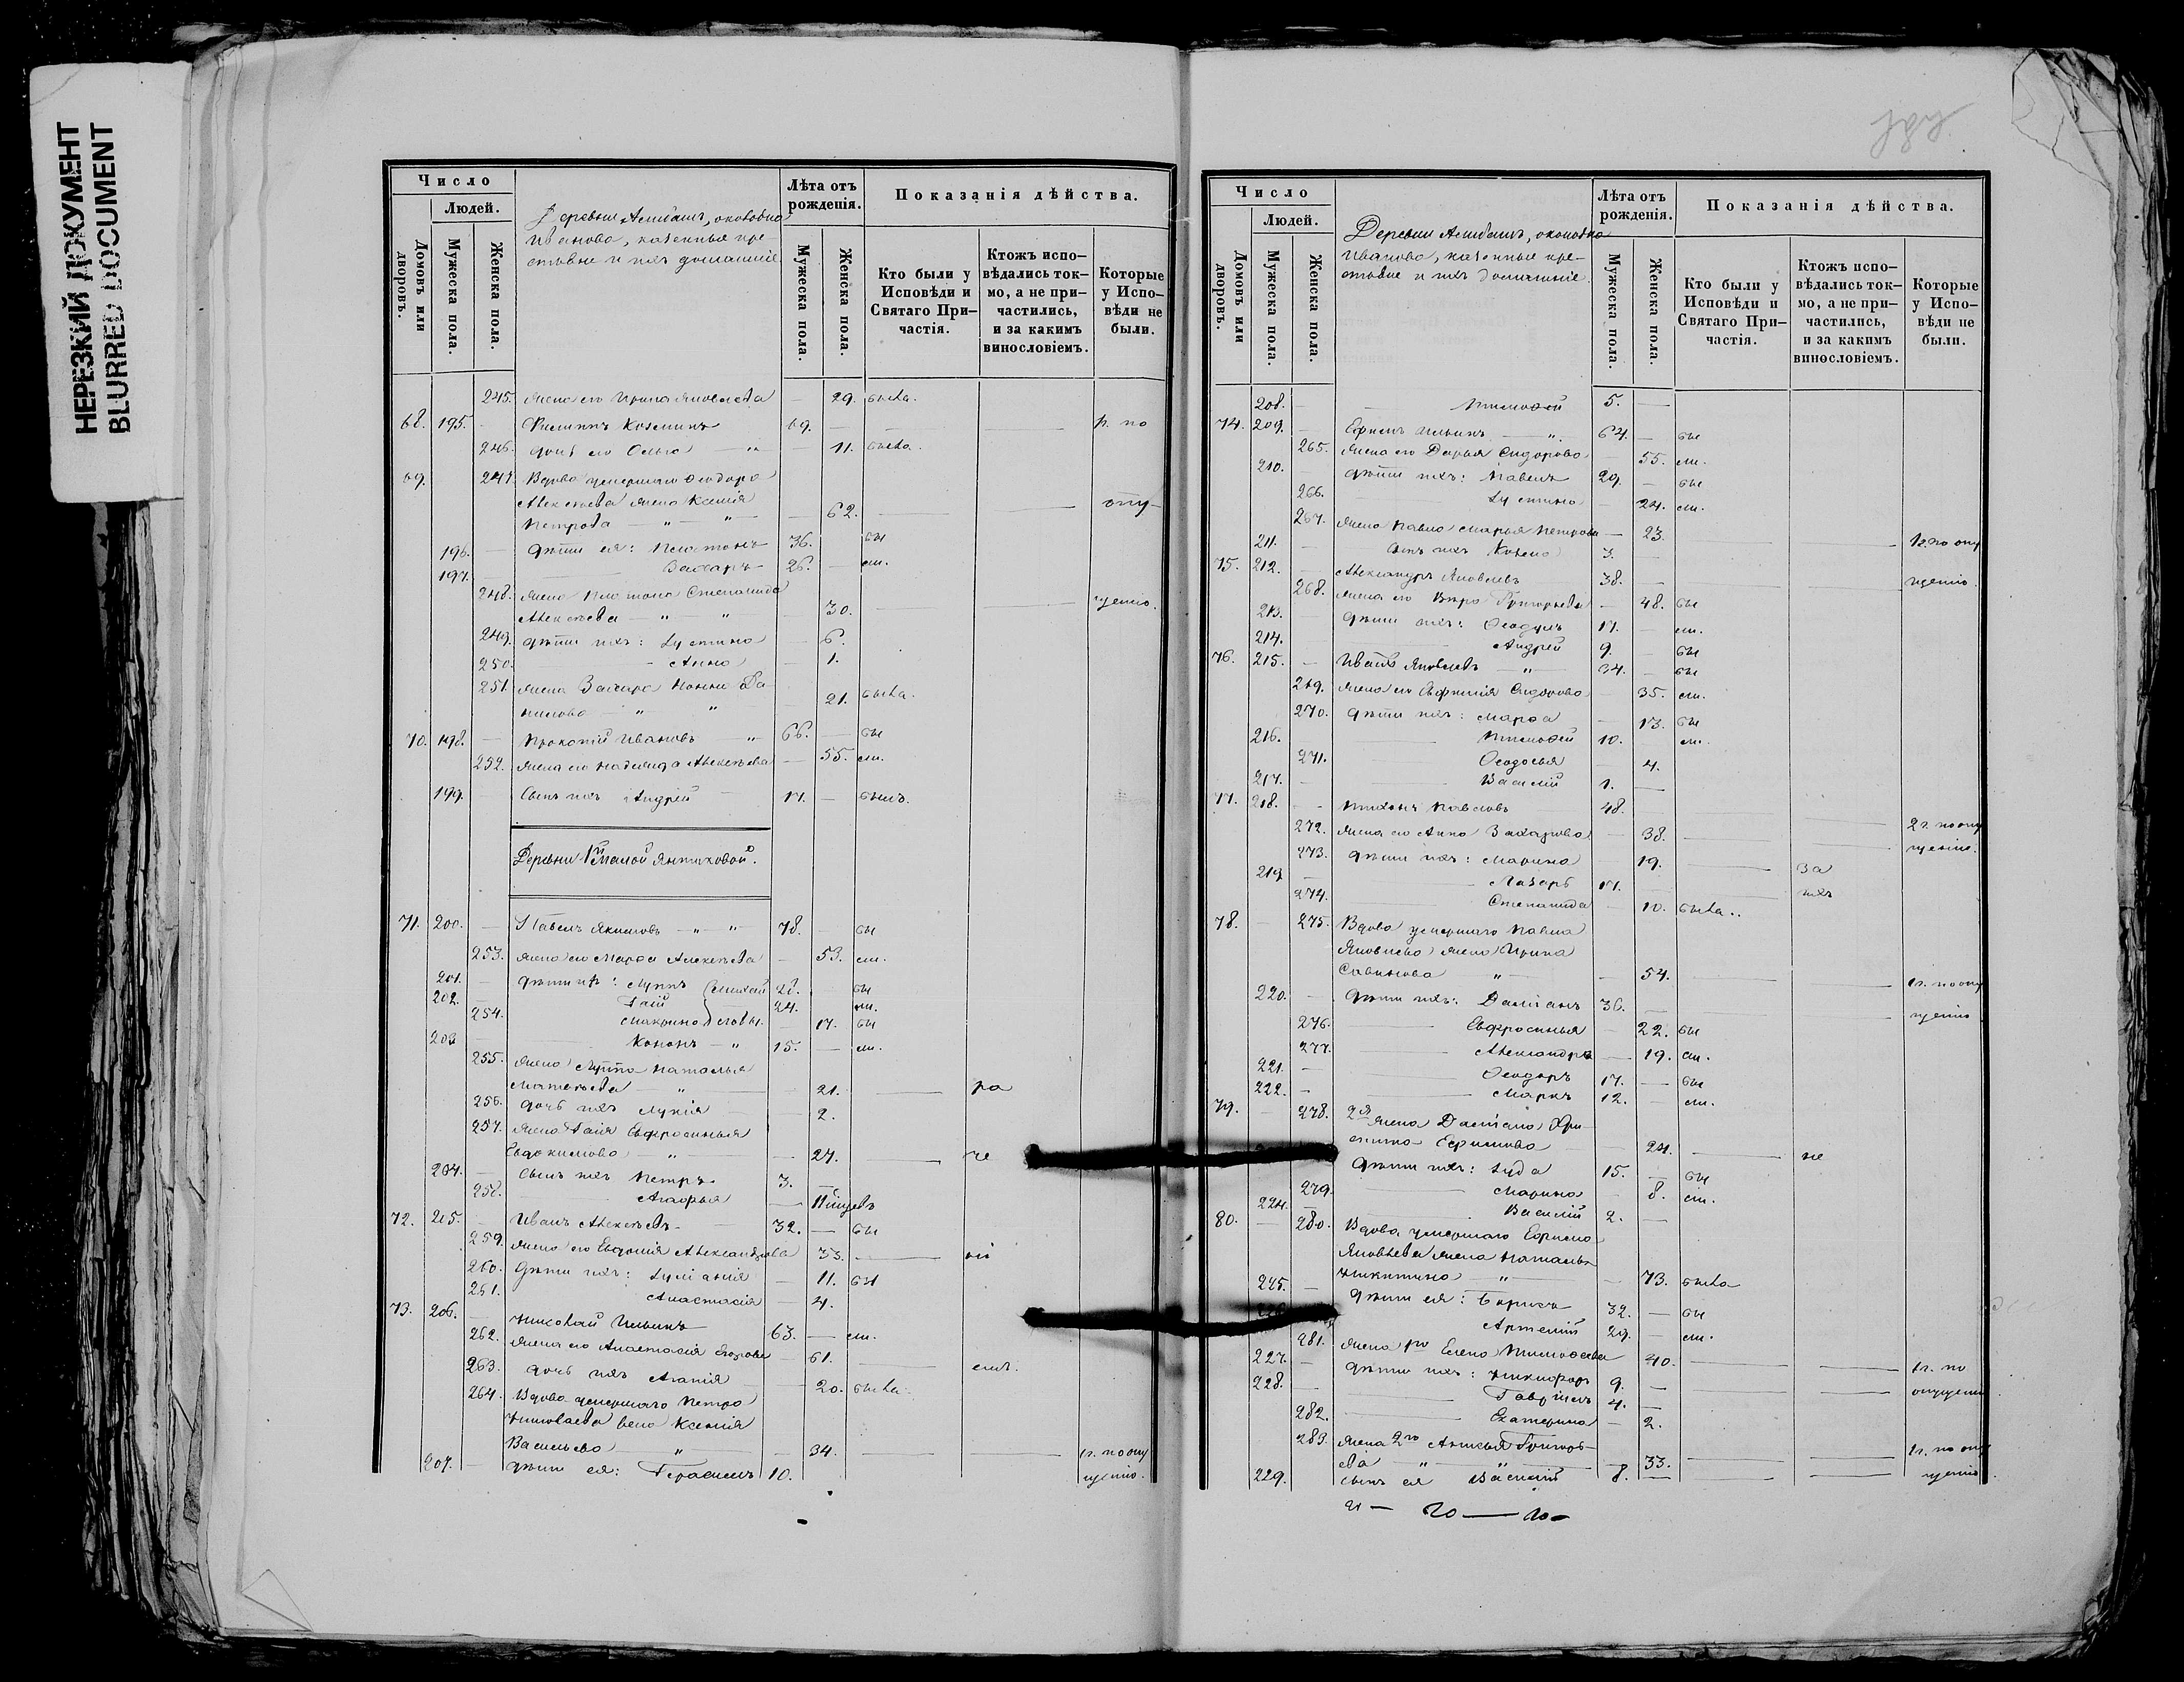 НЕРЕЗКИЙ ДОКУМЕНТ
BLURRED DOCUMENT
Число
Людей.
Домовъ или дворовъ.
Мужеска пола.
Женска пола.
Деревни околодка
Иванова, казенные кре-
стьяне и ихъ домашніе
Лѣта отъ рожденія.
Мужеска пола.
Женска пола.
Показанія дѣйства.
Кто были у Исповѣди и Святаго При-частія.
Ктожъ испо-вѣдались ток-мо, а не при-частились, и за какимъ винословіемъ.
Которые у Испо-вѣди не были.
245. жена его Ирина Яковлева — 29. была.
68. 195. — Филиппъ Козминъ 69. — по
246. дочь его Ольга — 11. была.
69. 247. Вдова умершаго Ѳеодора
Алексѣева жена Ксенія
Петрова — 62. опу-
196. — дѣти ея: Платонъ 36. бы
197. Захаръ 26. — ли.
248. жена Платона Степанида
Алексѣева — 30. щенію.
249. дѣти ихъ: Іустина — 6.
250. Анна — 1.
251. жена Захара Да-
нилова 21. была.
70. 198. — Прокопій Ивановъ 66. — бы
252. жена его Надежда Алексѣева — 55. ли.
199. Сынъ ихъ Андрей 17. — былъ.
Деревни Малой Янтиковой.
71. 200. — Павелъ Якимовъ 78. — бы
253. жена его Марѳа Алексѣева — 53. ли.
201. — дѣти ихъ: Луппъ 28. — бы
202. — Гаій 24. ли.
254. Макрина — 17. бы
203 Кононъ 15. — ли.
255. жена Луппа Наталья
Матвѣева — 21. — ра
256. дочь ихъ Лукія — 2.
257. жена Гаія Евфросинья
Евдокимова — 27. — не
204. — сынъ ихъ Петръ 3. —
258. Агафья — 11 мѣсяцевъ
72. 205. — Иванъ Алексѣевъ 32. — бы
259. жена его Евдокія Александрова 33. —
260. дѣти ихъ: Іуліанія — 11. бы
261. Анастасія — 4.
73. 206. — Николай Ильинъ 63. — ли.
262. жена его Анастасія Егорова — 61.
263. дочь ихъ Агапія 20. была
264. Вдова умершаго Петра
Николаева жена Ксенія
Васильева — 34. — 1 г. по опу
207. — дѣти ея: Герасимъ 10. щенію.
Число
Людей.
Домовъ или дворовъ.
Мужеска пола.
Женска пола.
Деревни околодка
Иванова, казенные кре-
стьяне и ихъ домашніе.
Лѣта отъ рожденія.
Мужеска пола.
Женска пола.
Показанія дѣйства.
Кто были у Исповѣди и Святаго При-частія.
Ктожъ испо-вѣдались ток-мо, а не при-частились, и за какимъ винословіемъ.
Которые у Испо-вѣди не были.
208. — Тимоѳей 5. —
74. 209. — Ефимъ Ильинъ 64. — бы
265. жена его Дарья Сидорова 55. ли.
210. — дѣти ихъ: Павелъ 29. — бы
266. Іустина — 24. ли.
267. жена Павла Марья Петрова — 23.
211. — сынъ ихъ Козма 3. — 1 г. по опу
75. 212. — Александръ Яковлевъ 38. — щенію.
268. жена его Вѣра Григорьева — 48. бы
213. — дѣти ихъ: Ѳеодулъ 17. — ли.
214. Андрей 9. — бы
76. 215. — Иванъ Яковлевъ 34. — бы
269. жена его Евфимія Сидорова 35. ли.
270. дѣти ихъ: Марѳа — 13. бы
216. — Тимоѳей 10. — ли.
271. Ѳеодосья — 4.
217. — Василій 1. —
77. 218. — Тихонъ Павловъ 48.
272. жена его Анна Захарова — 38. — 2 г. по опу
273. дѣти ихъ: Марина — 19. — щенію.
219. — Лазарь 17. — за
274. Степанида — 10. была.
78. — 275. Вдова умершаго Павла
Яковлева жена Ирина
Савинова — 54. — 1 г. по опу
220. — дѣти ихъ: Даміанъ 36. — щенію
276. Евфросинья — 22. бы
277. Александра — 19. ли.
221. — Ѳеодоръ 17. — бы
222. — Маркъ 12. — ли.
79. — 278. 2я жена Даміана Хри-
стина Ефимова 24. — не
дѣти ихъ: Іуда 15. — бы
279. Марина — 8. ли.
224. Василій 2. —
80. — 280. Вдова умершаго Ефима
Яковлева жена Наталья
Никитина — 73. была
225. — дѣти ея: Борисъ 32. — бы
Артемій 29. — ли.
281. жена 1го Елена Тимоѳеева 40. — 1 г. по
227. — дѣти ихъ: Никифоръ 9. — опущенію
228. — Гавріилъ 4. —
282. Екатерина — 2.
283. жена 2го Анисья Григорь-
ева — 33. — 1 г. по опу
229. сынъ ея Василій 8. — щенію.